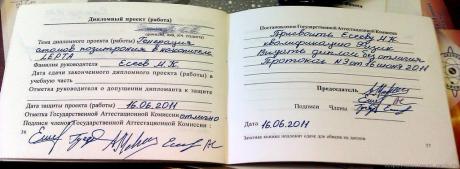 Дипломный проект (работа)
Тема дипломного проекта (работы) Генерация
атомов позитрония в накопителе
LEPTA
Фамилия руководителя Есеев М.К.
Дата сдачи законченного дипломного проекта (работы) в
учебную часть
Отметка руководителя о допущении дипломанта к защите
Дата защиты проекта (работы) 16.06.2011
Отметка Государственной Аттестационной Комиссии отлично
Подписи членов Государственной Аттестационной Комиссии:
36
Постановления Государственной Аттестационной Комиссии
Присвоить Есееву М.К.
квалификацию Физик
Выдать диплом с отличием
Протокол №3 от 16 июня 2011
Председатель
Подписи Члены
Дата 16.06.2011
Зачетная книжка подлежит сдаче для обмена на диплом.
37